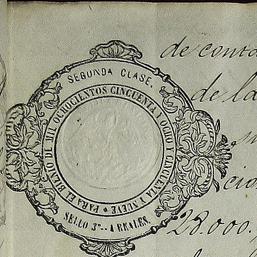 SEGUNDA CLASE.
PARA EL BIENIO DE MIL OCHOCIENTOS CINCUENTA Y OCHO Y CINCUENTA Y NUEVE
SELLO 3º.- 4 REALES.
de conta
de la
28.000.